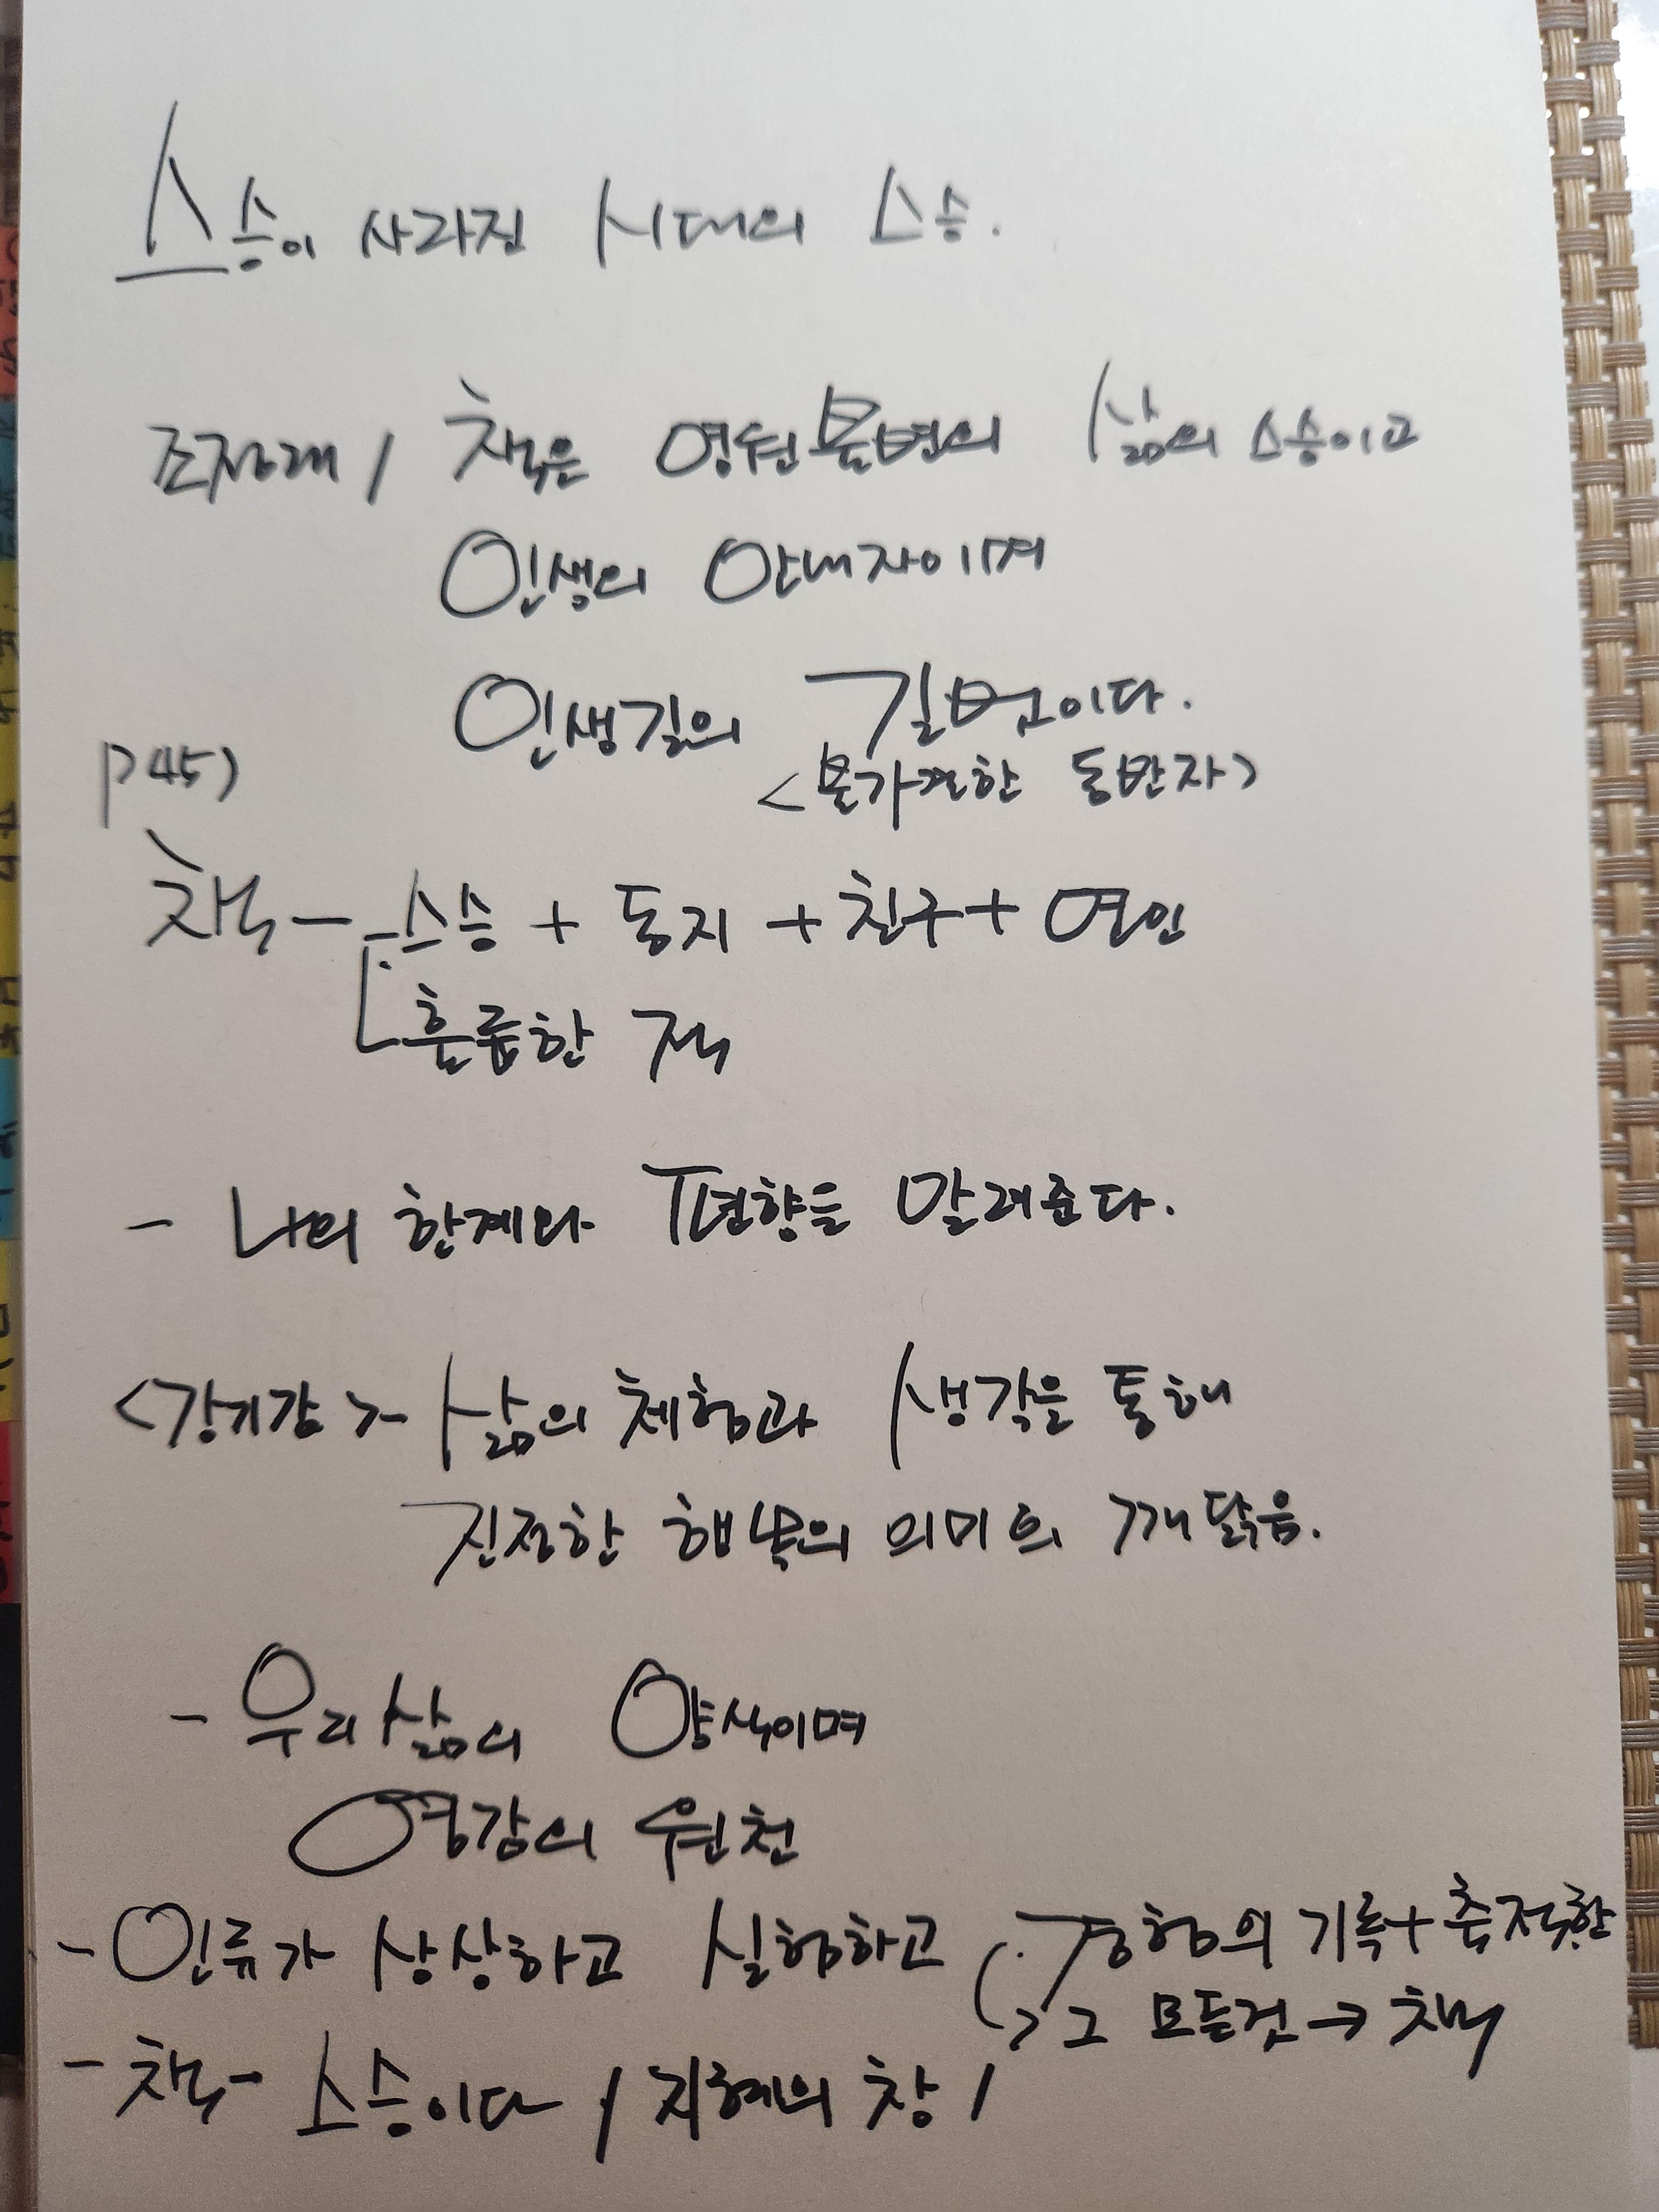 스승이 사라진 시대의 스승.
조정래 / 책은 영원불변의 삶의 스승이고
인생의 안내자이며
인생길의 길벗이다.
<불가결한 동반자>
P45)
책 - 스승 + 동지 + 친구 + 연인
훌륭한 적
- 나의 한계와 편향을 알려준다.
<강기갑> - 삶의 체험과 생각을 통해
진정한 행복의 의미의 깨달음.
- 우리 삶의 양식이며
영감의 원천
- 인류가 상상하고 실험하고 경험의 기록 + 축적한
> 그 모든것 → 책
- 책 - 스승이다 / 지혜의 창 /